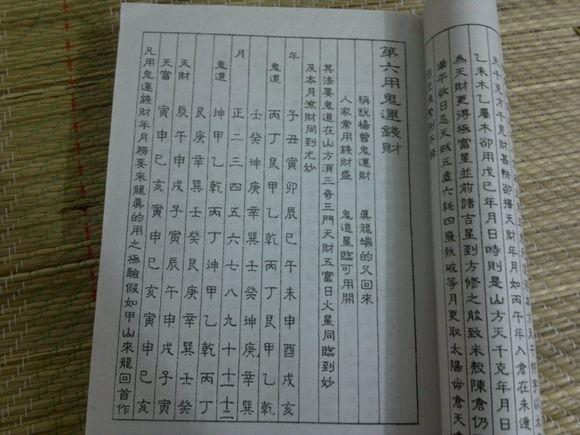 乙未木乙屬木卻用戊己年月日時則是山方天千克年月日
為天財更得極富星並前諸吉星到方修之能致米穀陳倉仍
滿平收日忌天賊五虛六耗四廢執破等月更取太陽毋倉天
第六用鬼運錢財
稱說楊曾鬼運財 真龍端的又回來
人家常用錢財盛 鬼道星臨可用開
其法要鬼道在山方須三奇三門天財五富日火星同臨到妙
及本月家財同到尤妙
年 子丑寅卯辰巳午未申酉戌亥
鬼道 丙丁艮甲乙乾丙丁艮甲乙乾
壬癸坤庚辛巽壬癸坤庚辛巽
月 正二三四五六七八九十十一十二
鬼道 坤甲乙乾丙丁坤甲乙乾丙丁
艮庚辛巽壬癸艮庚辛巽壬癸
天財 辰午申戌子寅辰午申戌子寅
天富 寅申巳亥寅申巳亥寅申巳亥
凡用鬼運錢財年月務要來龍真的用之極驗假如甲山來龍回首作